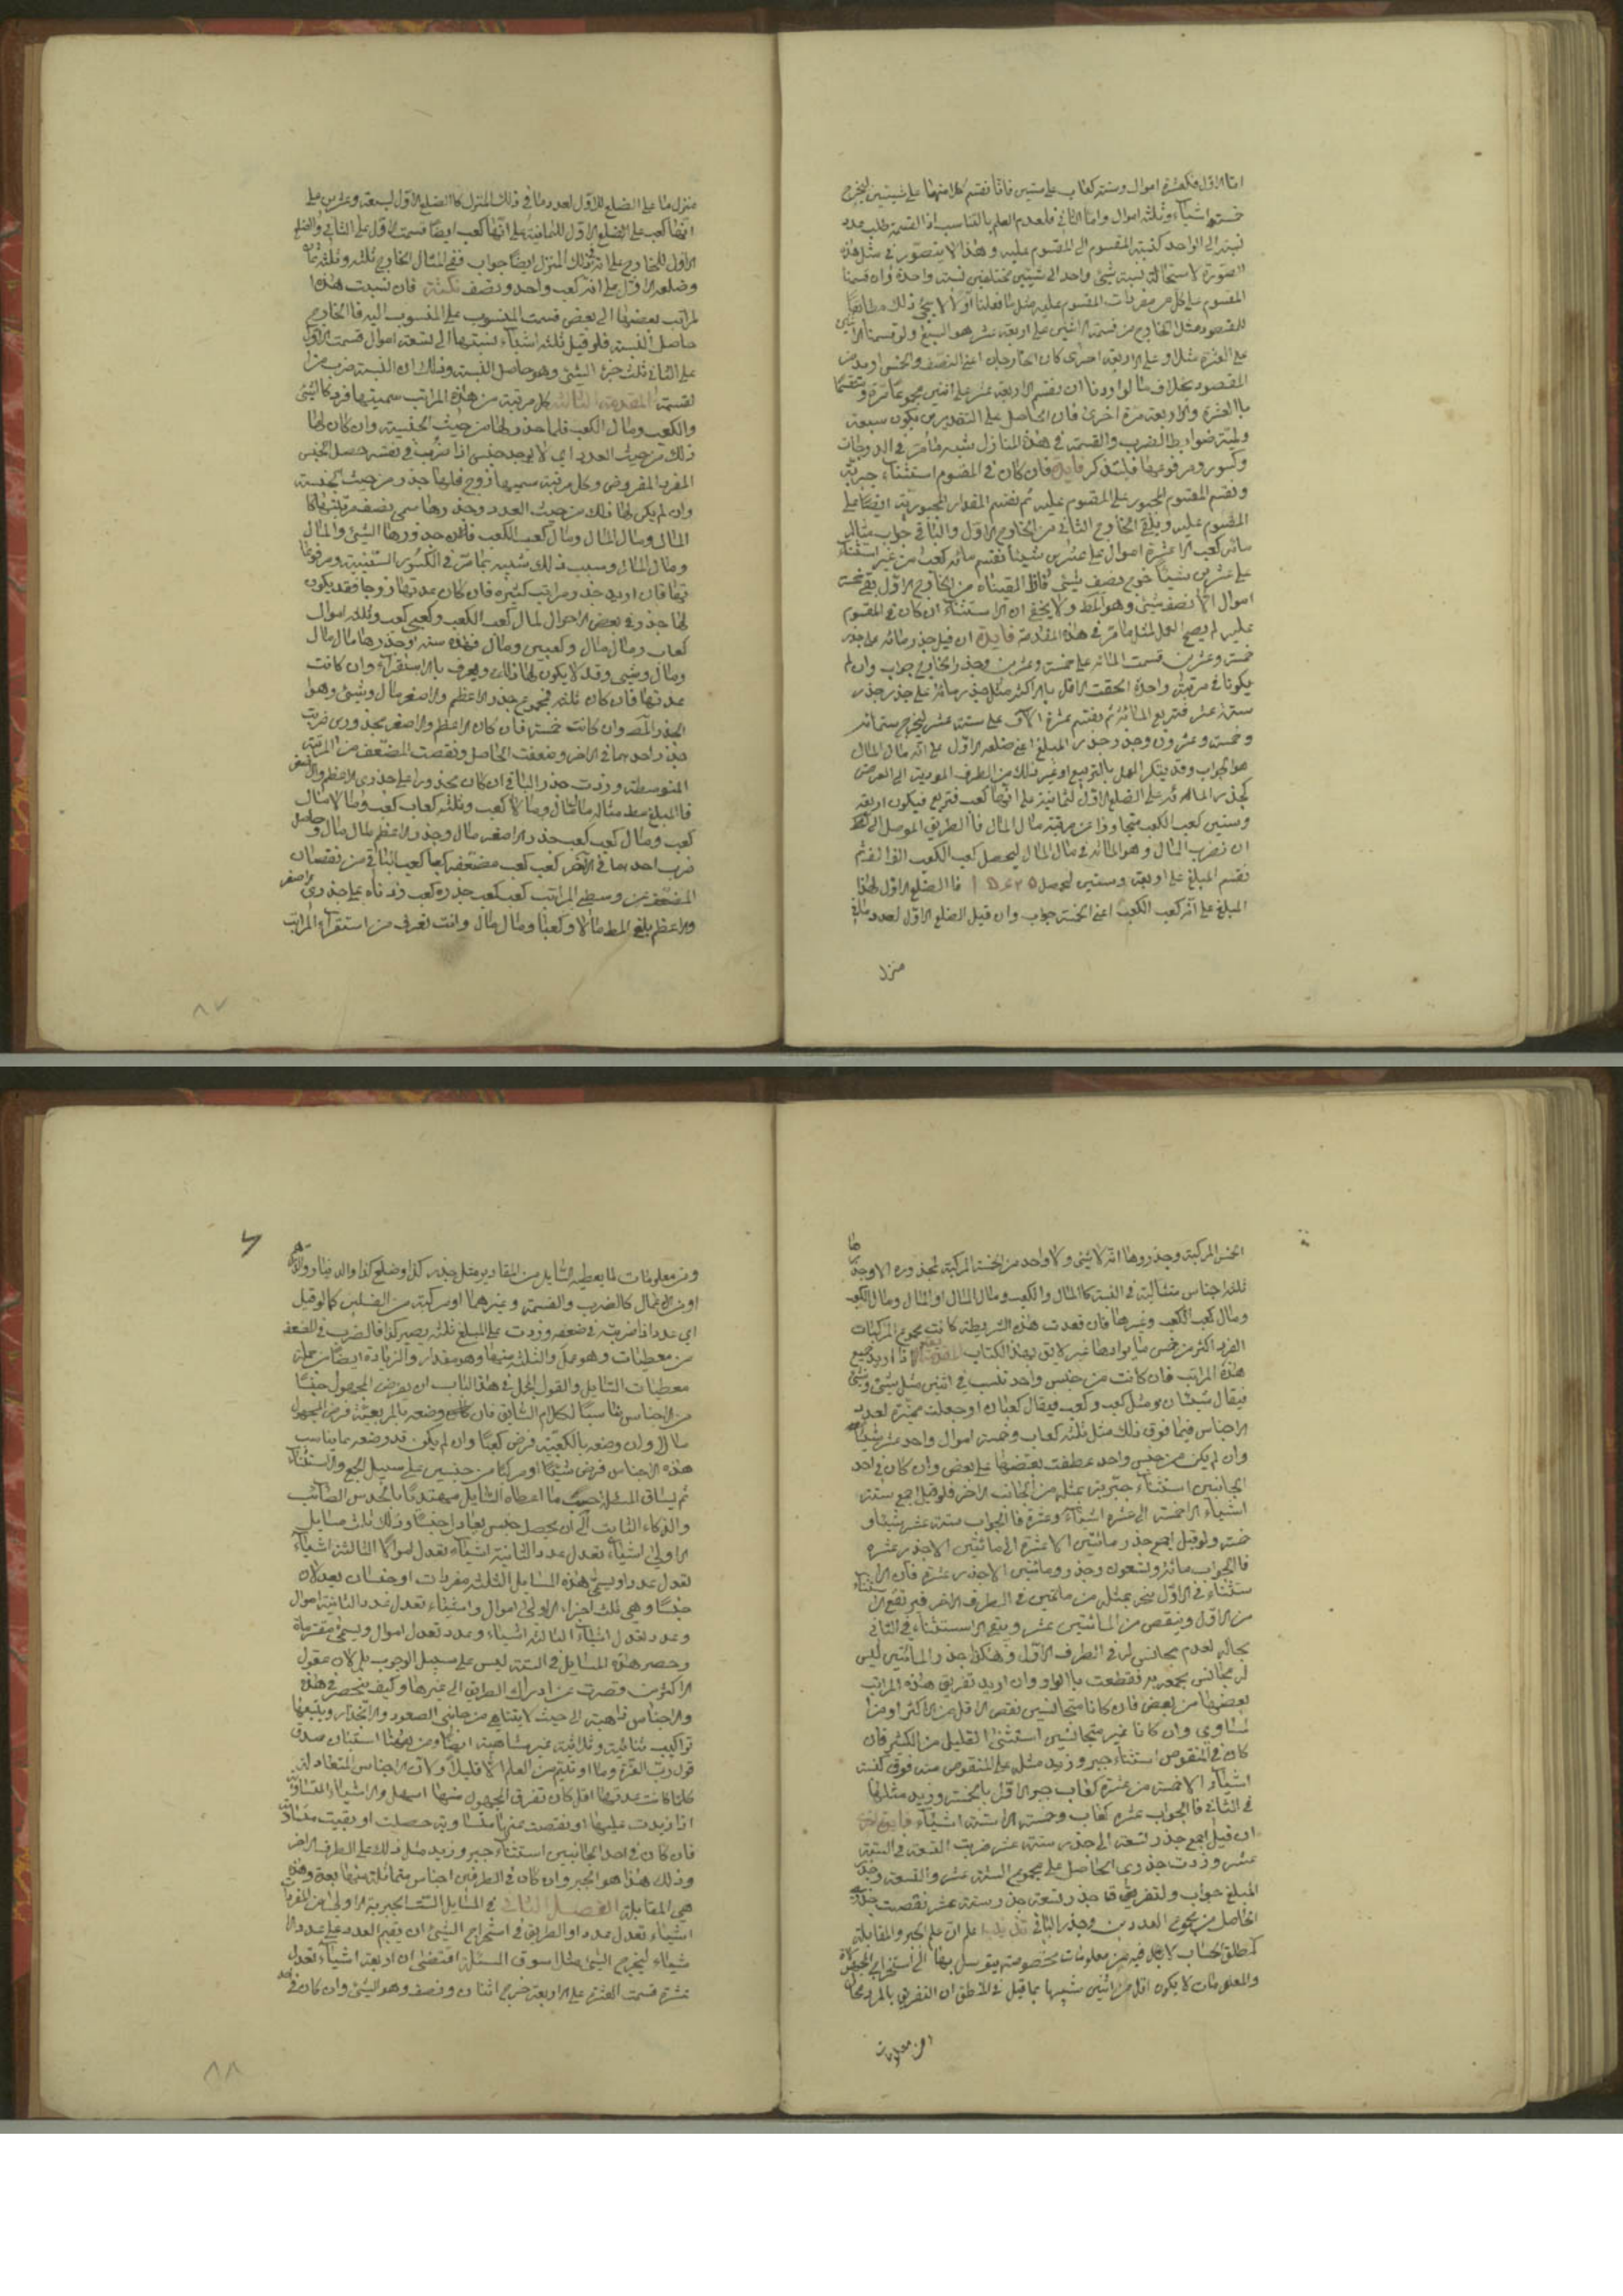 اما الاول فكعشرة اموال وستة كعاب على شيئين فانا نقسم كلا منهما على شيئين ليخرج
خمسة اشياء وثلثة اموال واما الثاني فلعدم العلم بالتناسب اذ القسمة طلب عدد
نسبته الى الواحد كنسبة المقسوم الى المقسوم عليه وهذا لا يتصور في مثل هذه
الصورة لاستحالة نسبة شيء واحد الى شيئين مختلفين نسبة واحدة وان قسمنا
المقسوم على كل من مفردات المقسوم عليه مثل ما فعلنا اولا لا يجئ ذلك مطابقا
للمقصود مثل الخارج من قسمة الاثنين على اربعة عشر هو السبع ولو قسمنا الاثنين
على العشرة مثلا وعلى الاربعة اخرى كان الخارجان اعني النصف والخمس ازيد من
المقصود بخلاف ما لو اردنا ان نقسم الاربعة عشر على اثنين مجموعا مرة ومنقسما
بالعشرة والاربعة مرة اخرى فان الحاصل على التقديرين يكون سبعة
ولمية ضوابط الضرب والقسمة في هذه المنازل شبيه ما مر في الدرجات
وكسور ومرفوعها فليتذكر فايدة فان كان في المقسوم استثناء جبرته
ونقسم المقسوم المجبور على المقسوم عليه ثم نقسم المقدار المجبور به ايضا على
المقسوم عليه ونلقي الخارج الثاني من الخارج الاول والباقي جواب مثاله
مائة كعب الا عشرة اموال على عشرين شيئا نقسم مائة كعب من غير استثناء
على عشرين شيئا خرج نصف شيء فاذا القيناه من الخارج الاول بقي خمسة
اموال الا نصف شيء وهو المط ولا يخفى ان الاستثناء ان كان في المقسوم
عليه لم يصح العمل لمثل ما مر في هذه المقدمة فايدة ان قيل جذر مائة على جذر
خمسة وعشرين قسمت المائة على خمسة وعشرين وجذر الخارج جواب وان لم
يكونا في مرتبة واحدة الحقت الاقل بالاكثر مثل جذر مائة على جذر جذر
ستة عشر فتربع المائة ثم نقسم عشرة الآف على ستة عشر ليخرج ستمائة
وخمسة وعشرون وجذر جذر المبلغ اعني ضلعه الاول على انه مال المال
هو الجواب
وستين كعب الكعب متجاوزا عن مرتبة مال المال فالطريق الموصل الى المط
ان نضرب المال وهو المائة في مال المال ليحصل كعب الكعب الفا الف ثم
نقسم المبلغ على اربعة وستين ليحصل فالضلع الاول لهذا
المبلغ على انه كعب الكعب اعني الخمسة جواب وان قيل الضلع الاول لعدد ما في
منزل
منزل ما على الضلع للاول لعدد ما في ذلك المنزل كالضلع الاول لسبعة وعشرين على
انها كعب على الضلع الاول للثمانية على انها كعب ايضا قسمت الاول على الثاني والضلع
الاول للخارج على انه في ذلك المنزل ايضا جواب ففي المثال الخارج ثلثة وثلثة اثمان
وضلعه الاول على انه كعب واحد ونصف نكتة فان نسبت هذه
المراتب بعضها الى بعض قسمت المنسوب على المنسوب اليه فالخارج
حاصل النسبة فلو قيل ثلثة اشياء نسبتها الى تسعة اموال قسمت الاول
على الثاني ثلث جزء الشيء وهو حاصل النسبة وذلك ان النسبة ضرب من
القسمة المقدمة الثالثة كل مرتبة من هذه المراتب سميتها فرد كالشيء
والكعب ومال الكعب فلا جذر لها من حيث الجنسية وان كان لها
ذلك من حيث العدد اي لا يوجد جنس اذا ضرب في نفسه حصل الجنس
المفرد المفروض وكل مرتبة سميها زوج فلها جذر من حيث الجنسية
وان لم يكن لها ذلك من حيث العدد وجذرها سمي نصف مرتبتها كا
لمال ومال المال ومال كعب الكعب فان جذورها الشيء والمال
ومال المال وسبب ذلك شبيه بما مر في الكسور الستينية ومرفوعا
تها فان اريد جذر مراتب كثيرة فان كان عدتها زوجا فقد يكون
لها جذر في بعض الاحوال لمال كعب الكعب وكعبي كعب وثلثة اموال
كعاب ومال مال وكعبين ومال فهذه ستة وجذرها مال مال
ومال وشيء وقد لا يكون لها ذلك ويعرف بالاستقراء وان كانت
عدتها فردا فان كان ثلثة فمجموع جذر الاعظم والاصغر مال وشيء وهو ا
لجذر المط وان كانت خمسة فان كان الاعظم والاصغر مجذورين ضربت
جذر احدهما في الآخر وضعفت الحاصل ونقصت المضعف من المرتبة
المتوسطة وزدت جذر الباقي ان كان مجذورا على جذري الاعظم والاصغر
فالمبلغ مط
كعب ومال كعب كعب جذر الاصغر مال وجذر الاعظم مال مال وحاصل
ضرب احدهما في الآخر كعب كعب مضعفه كعبا كعب الباقي من نقصان
المضعف من وسطى المراتب كعب كعب جذره كعب زدناه على جذري اصغر
والاعظم بلغ المط مالا وكعبا ومال مال وانت تعرف من استقراء المراتب
٨٧
الخمس المركبة وجذورها انه لا شيء ولا واحد من الخمسة المركبة مجذوره الا وجد
ثلثة اجناس متتالية في النسبة كالمال والكعب ومال المال او المال ومال الكعب
ومال كعب الكعب وغيرها فان فقدت هذه الشريطة كانت مجموع المركبات
الفرد اكثر من خمس ما يرادها غير لايق بهذا الكتاب المقدمة اذا اريد جمع
هذه المراتب فان كانت من جنس واحد تثبت في اثنين مثل شيء وشيء
فيقال شيئان ومثل كعب وكعب فيقال كعبان او جعلت مميزة لعدد
الاجناس فيما فوق ذلك مثل ثلثة كعاب وخمسة اموال واحد عشر شيئا
وان لم يكن من جنس واحد عطفت بعضها على بعض وان كان في احد
الجانبين استثناء جبرته بمثله من الجانب الاخر فلو قيل اجمع ستة
اشياء الا خمسة الى عشرة اشياء وعشرة فالجواب ستة عشر شيئا و
خمسة ولو قيل اجمع جذر مائتين الا عشرة الى مائتين الا جذر عشرة
فالجواب مائة وتسعون وجذر ومائتين الا جذر عشرة فان الا
ستثناء في الاول ينجبر بمثله من مائتين في الطرف الاخر فيرتفع الا
من الاول وينقص من المائتين عشر ويبقى الاستثناء في الثاني
بحاله لعدم مجانس له في الطرف الاول وهكذا جذر المائتين ليس
له مجانس يجمعه به فقطعت بالواو وان اريد تفريق هذه المراتب
بعضها من بعض فان كانا متجانسين نقص الاقل من الاكثر او من ا
لمساوي وان كانا غير متجانسين استثني القليل من الكثير فان
كان في المنقوص استثناء جبر وزيد مثله على المنقوص منه فوق كستة
اشياء الا خمسة من عشرة كعاب جبر الاول بالخمسة وزيد مثلها
في الثاني فالجواب عشرة كعاب وخمسة الا ستة اشياء فايدة اخرى
ان قيل اجمع جذر تسعة الى جذر ستة عشر ضربت التسعة في الستة
عشر وزدت جذري الحاصل على مجموع الستة عشر والتسعة وجذر
المبلغ جواب ولتفريق جذر تسعة جذر ستة عشر نقصت جذري
الحاصل من مجموع العددين وجذر الباقي اعلم ان علم الجبر والمقابلة
كمطلق الحساب لا بد فيه من معلومات مخصوصة يتوسل بها الى استخراج المجهولات
والمعلومات لا يكون اقل من اثنين شبيها بما قيل في المنطق ان التعريف بالمفرد محال
ومن معلومات
ومن معلومات ما يعطيه السايل من المقادير مثل جذر كذا وضلع كذا والدينار والدرهم
او من الاعمال كالضرب والقسمة وغيرهما او مركبة من القسمين كما لو قيل
اي عدد اذا ضربته في ضعفه وزدت على المبلغ ثلثة يصير كذا فالضرب في الضعف
من معطيات وهو عمل والثلثة منها وهو مقدار والزيادة ايضا من جملة
معطيات السايل والقول الجملي في هذا الباب ان يفرض المجهول جنسا
من الاجناس مناسبا لكلام السايل فان كان وصفه بالمربعية فرض المجهول
مالا وان وصفه بالكعبية فرض كعبا وان لم يكن قد وصفه بما يناسب
هذه الاجناس فرض شيئا او مركبا من جنسين على سبيل الجمع والاستثناء
ثم يساق المسئلة حسب ما اعطاه السايل مهتديا بالحدس الصائب
والذكاء الثابت الى ان يحصل جنس يعادل جنسا وذلك ثلث مسايل
الاولى اشياء تعدل عدد الثانية اشياء تعدل اموالا الثالثة اشياء
تعدل عددا ويسمى هذه المسايل الثلثة مفردات او جنسان يعدلان
جنسا وهي ثلث اخرى الاولى اموال واشياء تعدل عددا الثانية اموال
وعدد تعدل اشياء الثالثة اشياء وعدد تعدل اموال ويسمى مقترناة
وحصر هذه المسايل في الستة ليس على سبيل الوجوب بل لان عقول
الاكثرين قصرت عن ادراك الطريق الى غيرها وكيف ينحصر في هذه
والاجناس ذاهبة الى حيث لا يتناهى من جانبي الصعود والانحدار ويتبعها
تراكيب ثنائية وثلاثية غير متناهية ايضا ومن ههنا استبان صدق
قول رب العزة وما اوتيتم من العلم الا قليلا ولان الاجناس المتعادلة
كلما كانت عدتها اقل كان تعرف المجهول منها اسهل والاشياء المتساوية
اذا زيدت عليها او نقصت عنها متساوية حصلت او بقيت متساوية
فان كان في احد الجانبين استثناء جبر وزيد مثل ذلك على الطرف الاخر
وذلك هذا هو الجبر وان كان في الطرفين اجناس متماثلة
هي المقابلة الفصل الثاني في المسايل الست الجبرية الاولى من المفردات
اشياء تعدل عددا والطريق في استخراج الشيء ان يقسم العدد على عدد الا
شياء ليخرج الشيء مثلا سوق المسئلة اقتضى ان اربعة اشياء تعدل
عشرة قسمت العشرة على الاربعة خرج اثنان ونصف وهو الشيء وان كان في احد
٨٨